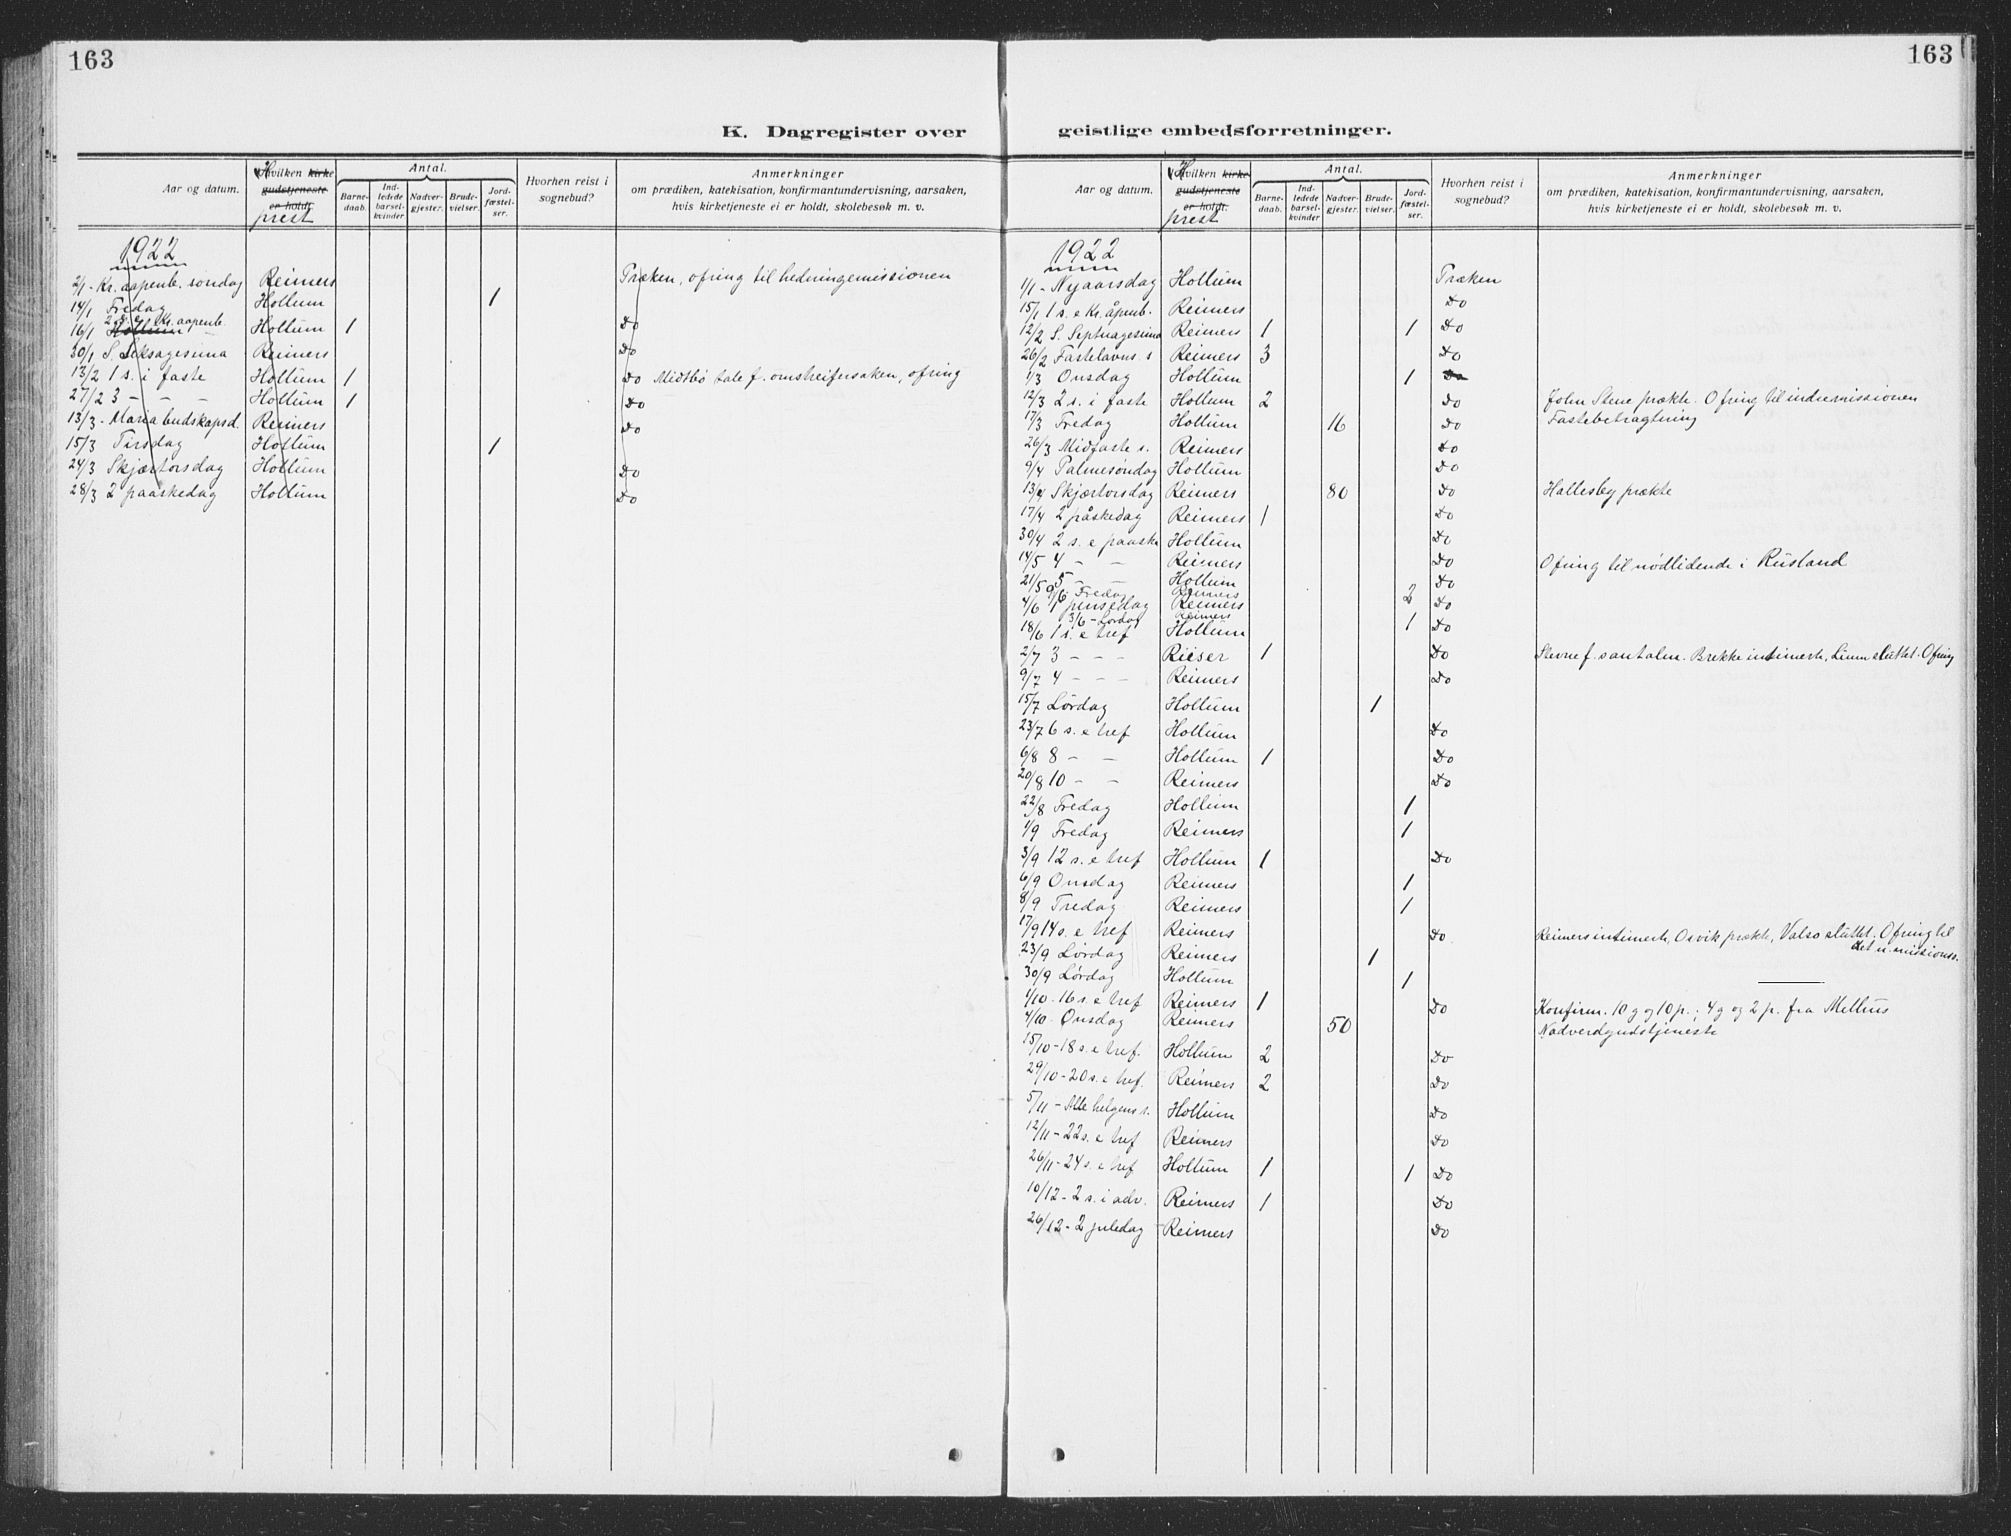 163
K. Dagregister over
Aar og datum.
Hvilken kirke gudstjeneste er holdt. prest
Antal.
Barne-daab.
Ind-ledede barsel-kvinder.
Nadver-gjester.
Brude-vielser.
Jord-fæstel-ser.
Hvorhen reist i sognebud?
Anmerkninger
om prædiken, katekisation, konfirmantundervisning, aarsaken,
hvis kirketjeneste ei er holdt, skolebesøk m. v.
1922
2/1 - Kr. aapenb. søndag Reimers Præken, ofring til hedningemissionen
14/1 Fredag Hollum 1
16/1 Hollum 2 s. e. Kr. aapenb. Hollum 1 Do
30/1 S. Seksagesima Reimers Do
13/2 1 s. i faste Hollum 1 Do Midtbø tale f. omstreifersaken, ofring
27/2 3 - - - Hollum 1 Do
13/3 - Maria budskapsd. Reimers Do
15/3 Tirsdag Hollum 1
24/3 Skjærtorsdag Hollum Do
28/3 2 paaskedag Hollum Do
163
geistlige embedsforretninger.
Aar og datum.
Hvilken kirke gudstjeneste er holdt. prest
Antal.
Barne-daab.
Ind-ledede barsel-kvinder.
Nadver-gjester.
Brude-vielser.
Jord-fæstel-ser.
Hvorhen reist i sognebud?
Anmerkninger
om prædiken, katekisation, konfirmantundervisning, aarsaken,
hvis kirketjeneste ei er holdt, skolebesøk m. v.
1922
1/1 - Nyaarsdag Hollum Præken
15/1 1 s. e Kr. åpenb. Reimers Do
12/2 S. Septuagesima Reimers 1 1 Do
26/2 Fastelavns. s Reimers 3 Do
1/3 Onsdag Hollum 1 Do
12/3 2 s. i faste Hollum 2 Do John Stene prækte. Ofring til indremissionen
17/3 Fredag Hollum 16 Do Fastebetragtning
26/3 Midfaste s. Reimers Do
9/4 Palmesøndag Hollum Do
13/4 Skjærtorsdag Reimers 80 Do Hallesby prækte
17/4 2 påskedag Reimers 1 Do
30/4 2 s. e paaske Hollum Do
14/5 4 - - Reimers Do Ofring til nødlidende i Rusland
21/5 5 - - Hollum Do
9/6 Fredag Reimers 2
4/6 1 pinsedag Reimers Do
3/6 - Lørdag Reimers 1
18/6 1 s. e tref Hollum Do
2/7 3 - - - Rieser 1 Do Stevne f. santalm. Brekke intimerte, Linum sluttet. Ofring
9/7 4 - - - Reimers Do
15/7 Lørdag Hollum 1
23/7 6 s. e tref Hollum Do
6/8 8 - - Hollum 1 Do
20/8 10 - - Reimers Do
22/8 Fredag Hollum 1
1/9 Fredag Reimers 1
3/9 12 s. e tref Hollum 1 Do
6/9 Onsdag Reimers 1
8/9 Fredag Reimers 1
17/9 14 s. e tref Reimers Do Reimers intimerte, Osvik prækte, Valsø sluttet. Ofring til
det n. missionss.
23/9 Lørdag Reimers 1
30/9 Lørdag Hollum 1
1/10 - 16 s. e tref Reimers 1 Do Konfirm. 10 g og 10 p.; 4 g og 2 p. fra Melhus
4/10 - Onsdag Reimers 50 Nadverdgudstjeneste
15/10 - 18 s. e tref. Hollum 2 Do
29/10 - 20 s. e tref. Reimers 2 Do
5/11 - Alle helgens s. Hollum Do
12/11 - 22 s. e tref Reimers Do
26/11 - 24 s. e tref Hollum 1 1 Do
10/12 - 2 s. i adv. Reimers 1 Do
26/12 - 2 juledag - Reimers Do